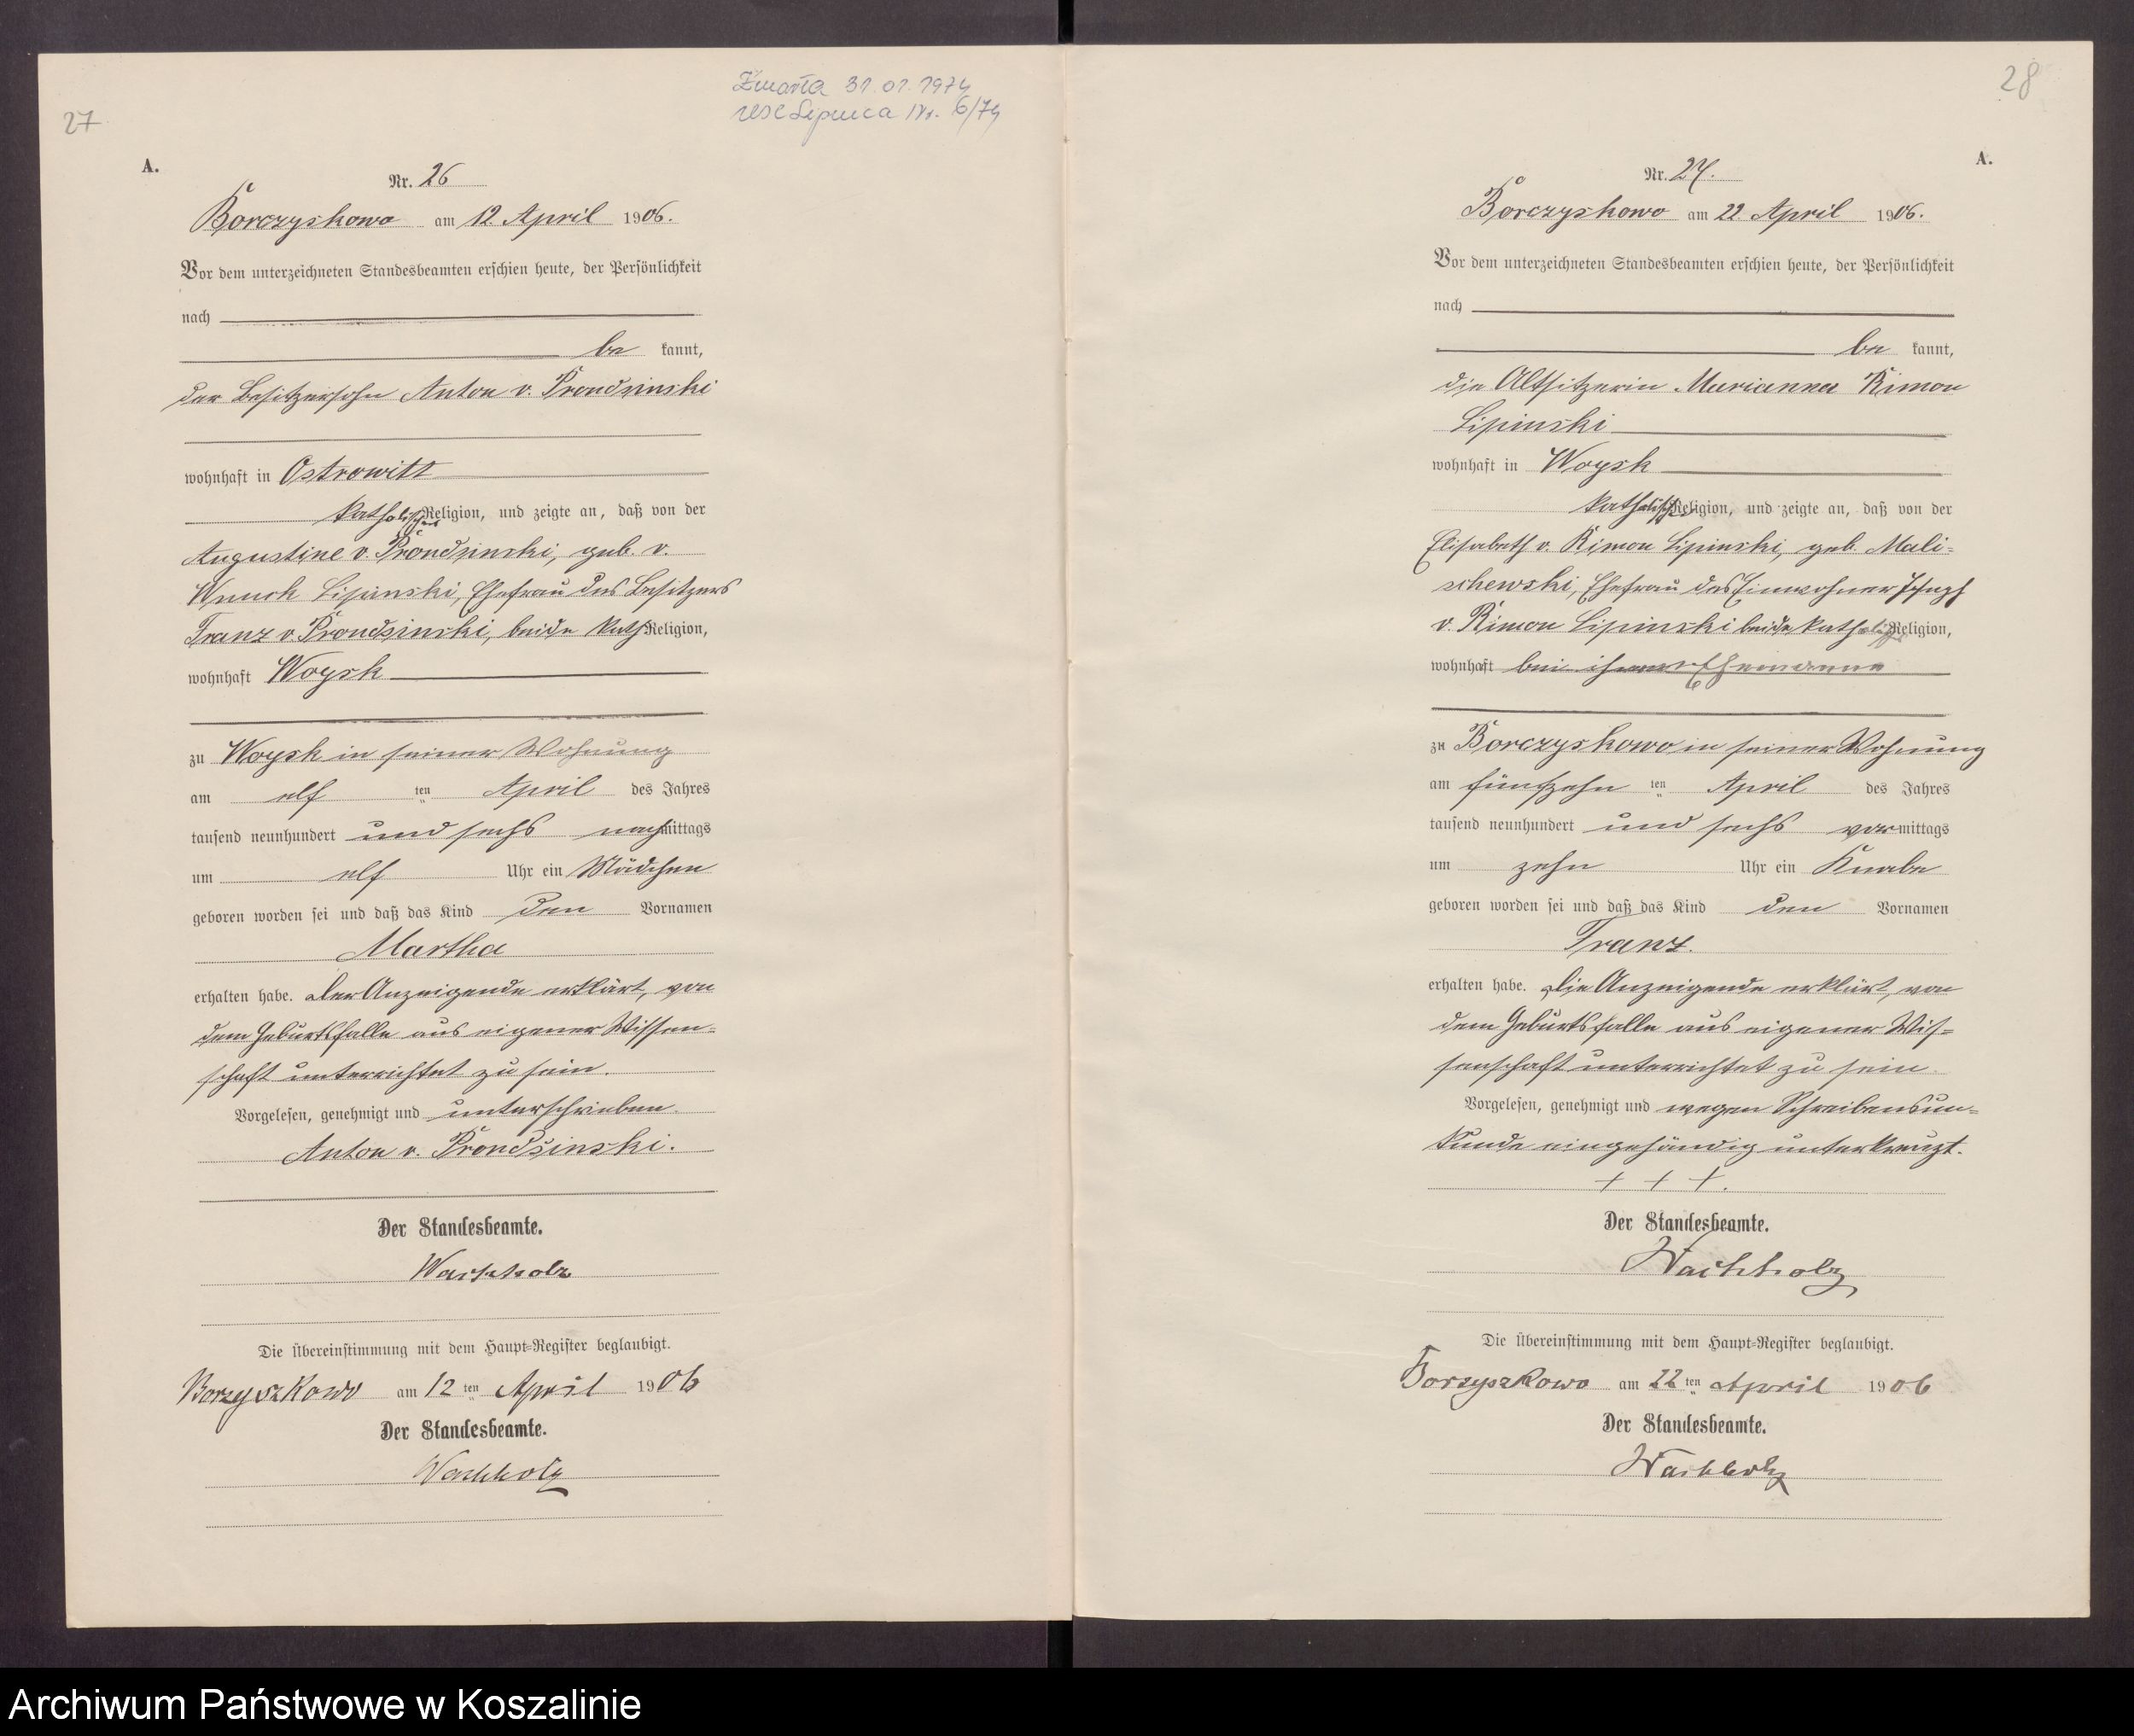 27
Zmarła 31.01.1974
USC Lipnica Nr. 6/74
A.
Nr. 26
Borczyskowo am 12. April 1906.
Vor dem unterzeichneten Standesbeamten erschien heute, der Persönlichkeit
nach
be kannt,
der Besitzersohn Anton v. Prondzinski
wohnhaft in Ostrowitt
katholischer Religion, und zeigte an, daß von der
Augustine v. Prondzinski, geb. v.
Wnuck Lipinski, Ehefrau des Besitzers
Franz v. Prondzinski, beide kath Religion,
wohnhaft Woysk
zu Woysk in seiner Wohnung
am elf ten April des Jahres
tausend neunhundert und sechs nachmittags
um elf Uhr ein Mädchen
geboren worden sei und daß das Kind den Vornamen
Martha
erhalten habe. Der Anzeigende erklärt, von
dem Geburtsfalle aus eigener Wissen-
schaft unterrichtet zu sein.
Vorgelesen, genehmigt und unterschrieben.
Anton v. Prondzinski.
Der Standesbeamte.
Wachholz
Die Übereinstimmung mit dem Haupt-Register beglaubigt.
Borzyszkowo am 12 ten April 1906
Der Standesbeamte.
Wachholz
28
A.
Nr. 27.
Borczyskowo am 22. April 1906.
Vor dem unterzeichneten Standesbeamten erschien heute, der Persönlichkeit
nach
be kannt,
die Altsitzerin Marianna Kimon
Lipinski
wohnhaft in Woysk
katholischer Religion, und zeigte an, daß von der
Elisabeth v. Kimon Lipinski, geb. Mali-
schewski, Ehefrau des Einwohner Joseph
v. Kimon Lipinski beide katholischer Religion,
wohnhaft bei ihrem Ehemanne
zu Borczyskowo in seiner Wohnung
am fünfzehn ten April des Jahres
tausend neunhundert und sechs vormittags
um zehn Uhr ein Knabe
geboren worden sei und daß das Kind den Vornamen
Franz.
erhalten habe. Die Anzeigende erklärt, von
dem Geburtsfalle aus eigener Wis-
senschaft unterrichtet zu sein.
Vorgelesen, genehmigt und wegen Schreibensun-
kunde eingehändig unterkreuzt.
+ + +.
Der Standesbeamte.
Wachholz
Die Übereinstimmung mit dem Haupt-Register beglaubigt.
Borzyszkowo am 22 ten April 1906
Der Standesbeamte.
Wachholz
Archiwum Państwowe w Koszalinie